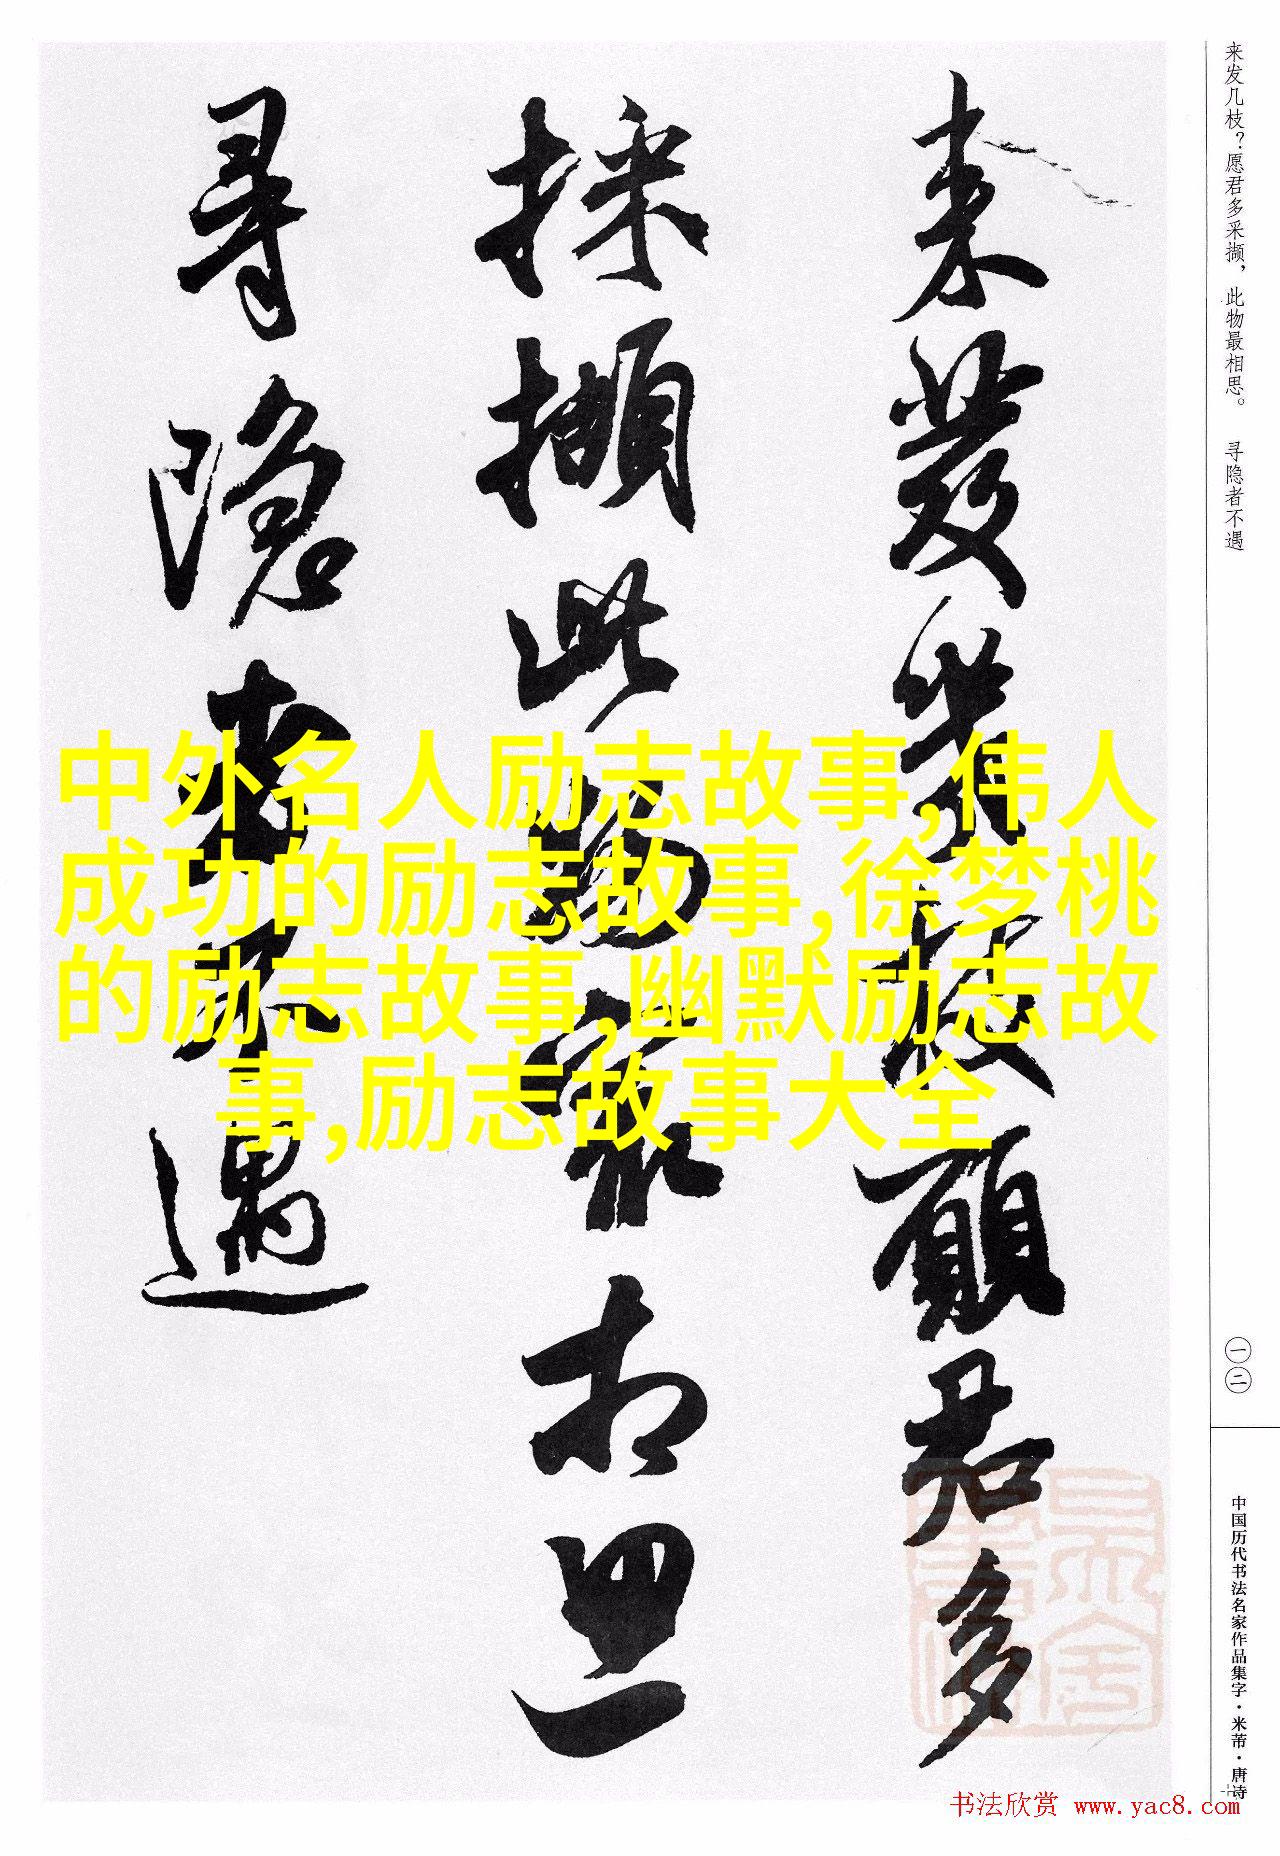 来发几枝？愿君多采撷，此物最相思。 寻隐者不遇
来發幾枝願君多
採擷此物最相思
尋隱者不遇
中外名人励志故事,伟人
成功的励志故事,徐梦桃
的励志故事,幽默励志故
事,励志故事大全
一二
中国历代书法名家作品集字·米芾·唐诗
书法欣赏 www.yac8.com